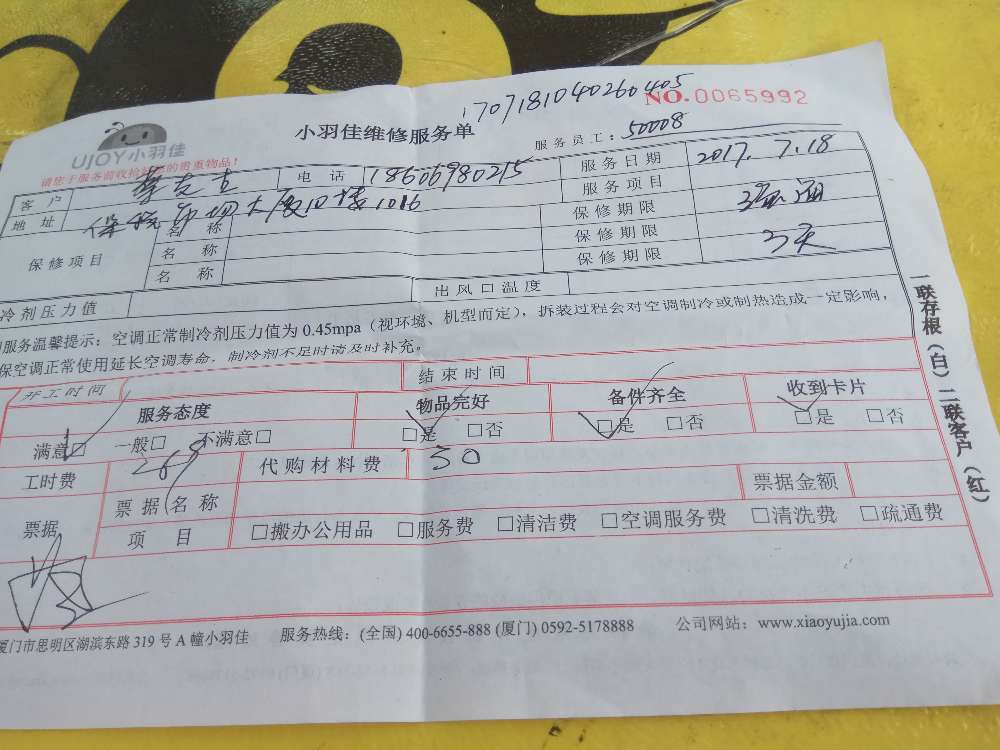 1707181040260405
NO.0065992
UJOY小羽佳
小羽佳维修服务单
服务员工：50008
请您于服务前收拾好您的贵重物品！
客户 电话 18606980215 服务日期 2017.7.18
地址 大厦10楼1016 服务项目
保修项目 名称 保修期限
名称 保修期限 3天
名称 保修期限
冷剂压力值 出风口温度
服务温馨提示：空调正常制冷剂压力值为 0.45mpa（视环境、机型而定），拆装过程会对空调制冷或制热造成一定影响，
保空调正常使用延长空调寿命，制冷剂不足时请及时补充。
开工时间 结束时间
服务态度 物品完好 备件齐全 收到卡片
满意□ 一般□ 不满意□ □是 □否 □是 □否 □是 □否
工时费 268 代购材料费 50
票据 票据名称 票据金额
项目 □搬办公用品 □服务费 □清洁费 □空调服务费 □清洗费 □疏通费
一联存根（白）二联客户（红）
厦门市思明区湖滨东路 319 号 A 幢小羽佳 服务热线：(全国) 400-6655-888 (厦门) 0592-5178888 公司网站：www.xiaoyujia.com